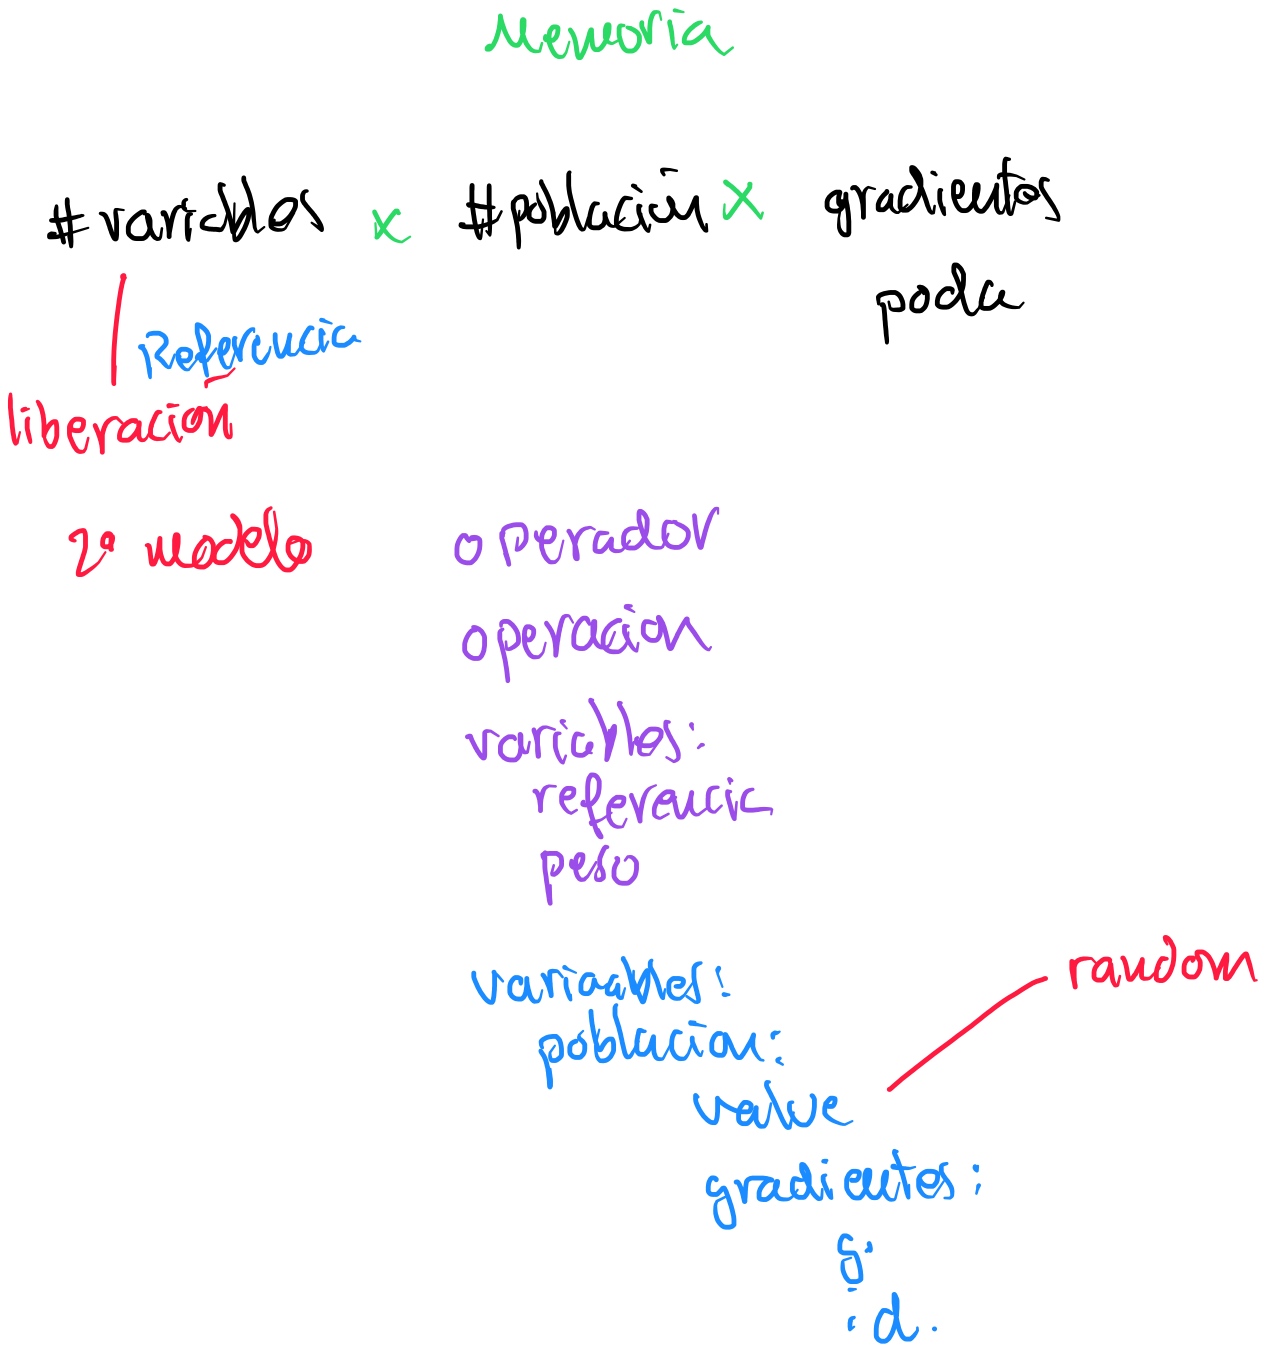 Memoria
#variables x #población x gradientes
poda
Referencia
liberación
2º modelo
operador
operacion
variables:
referencia
peso
random
variaables:
poblacion:
value
gradientes:
g:
id.